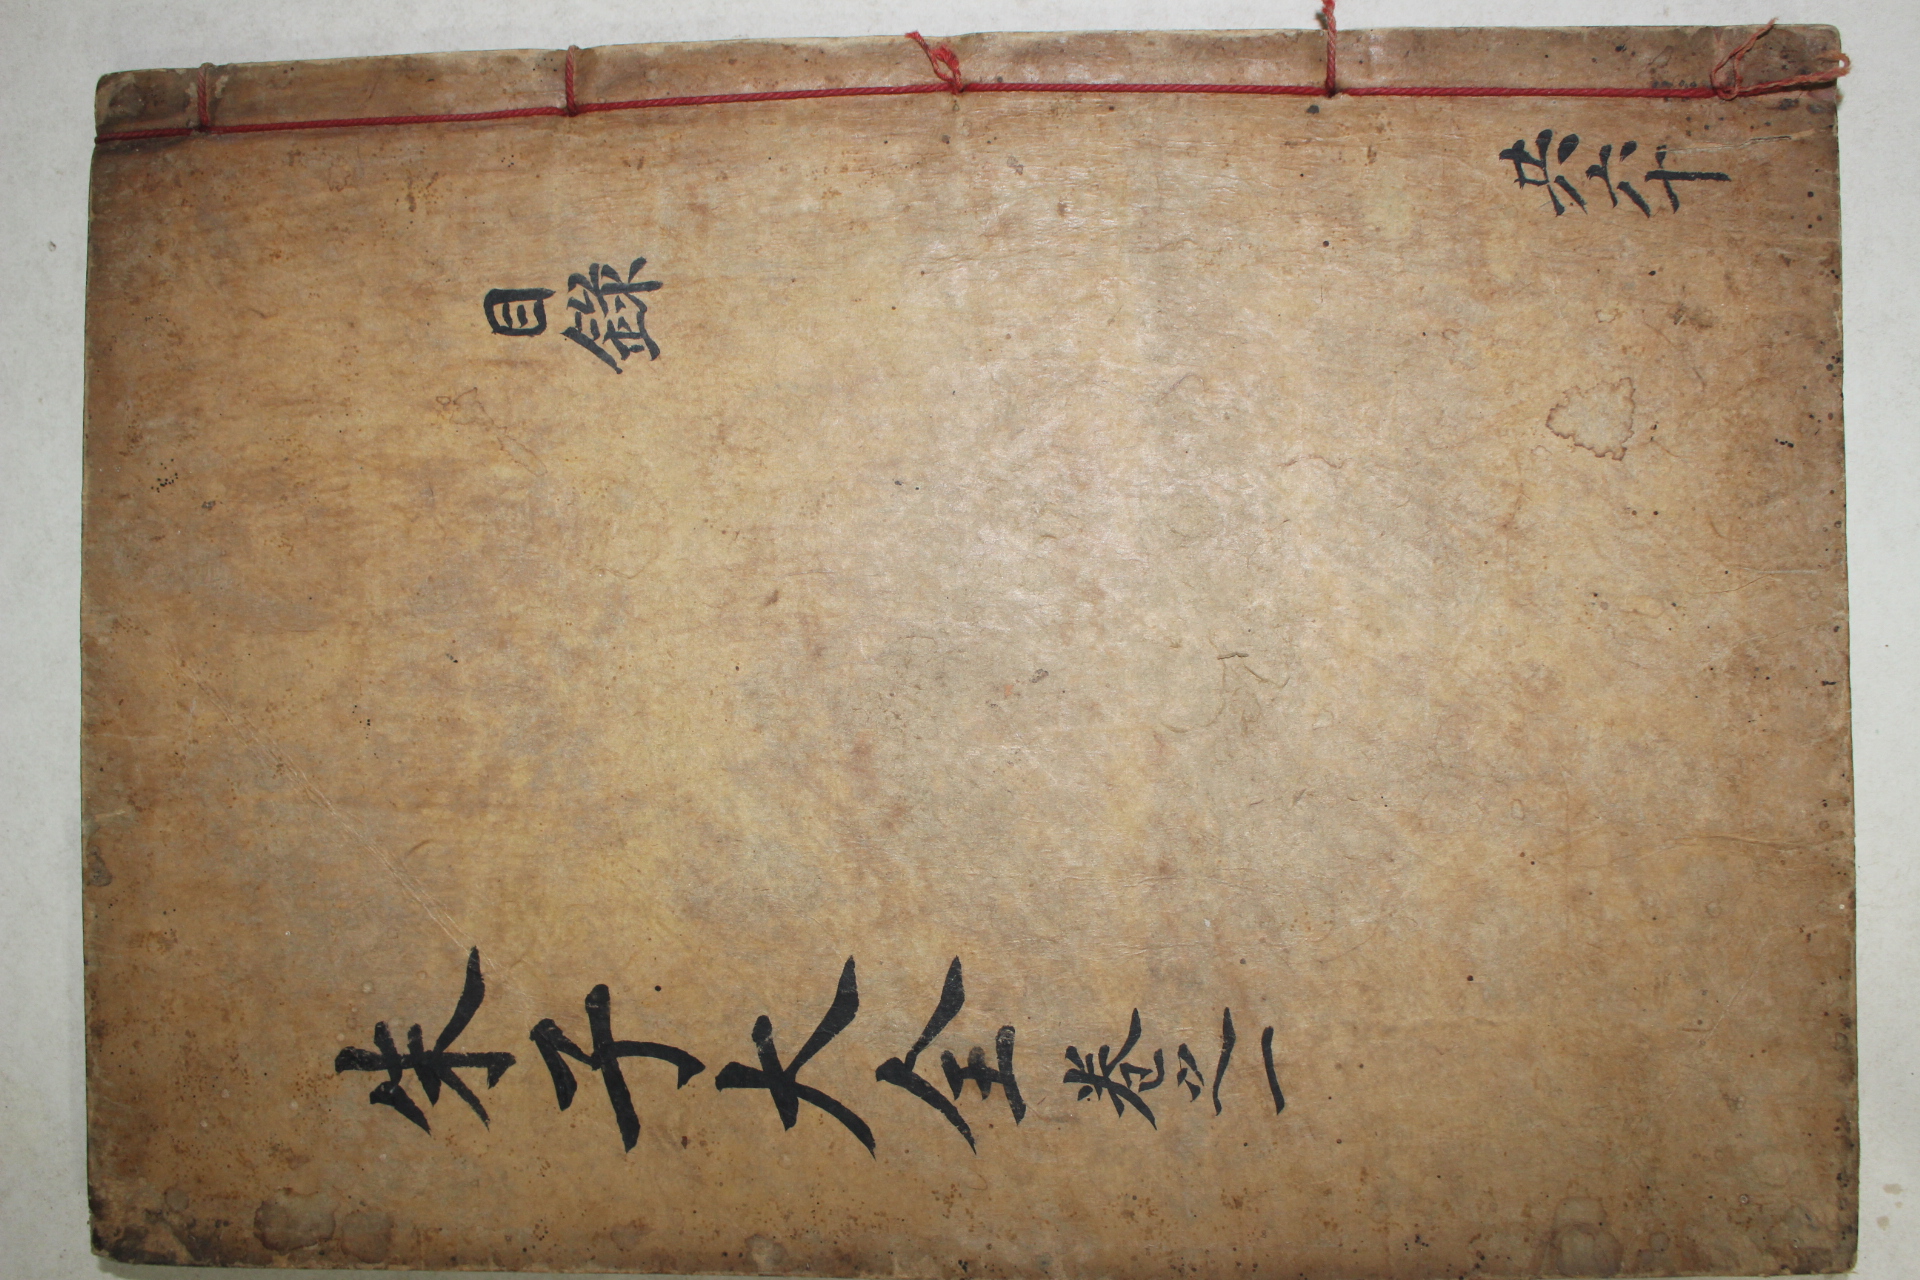 朱子大全 卷之一
目錄
共六十